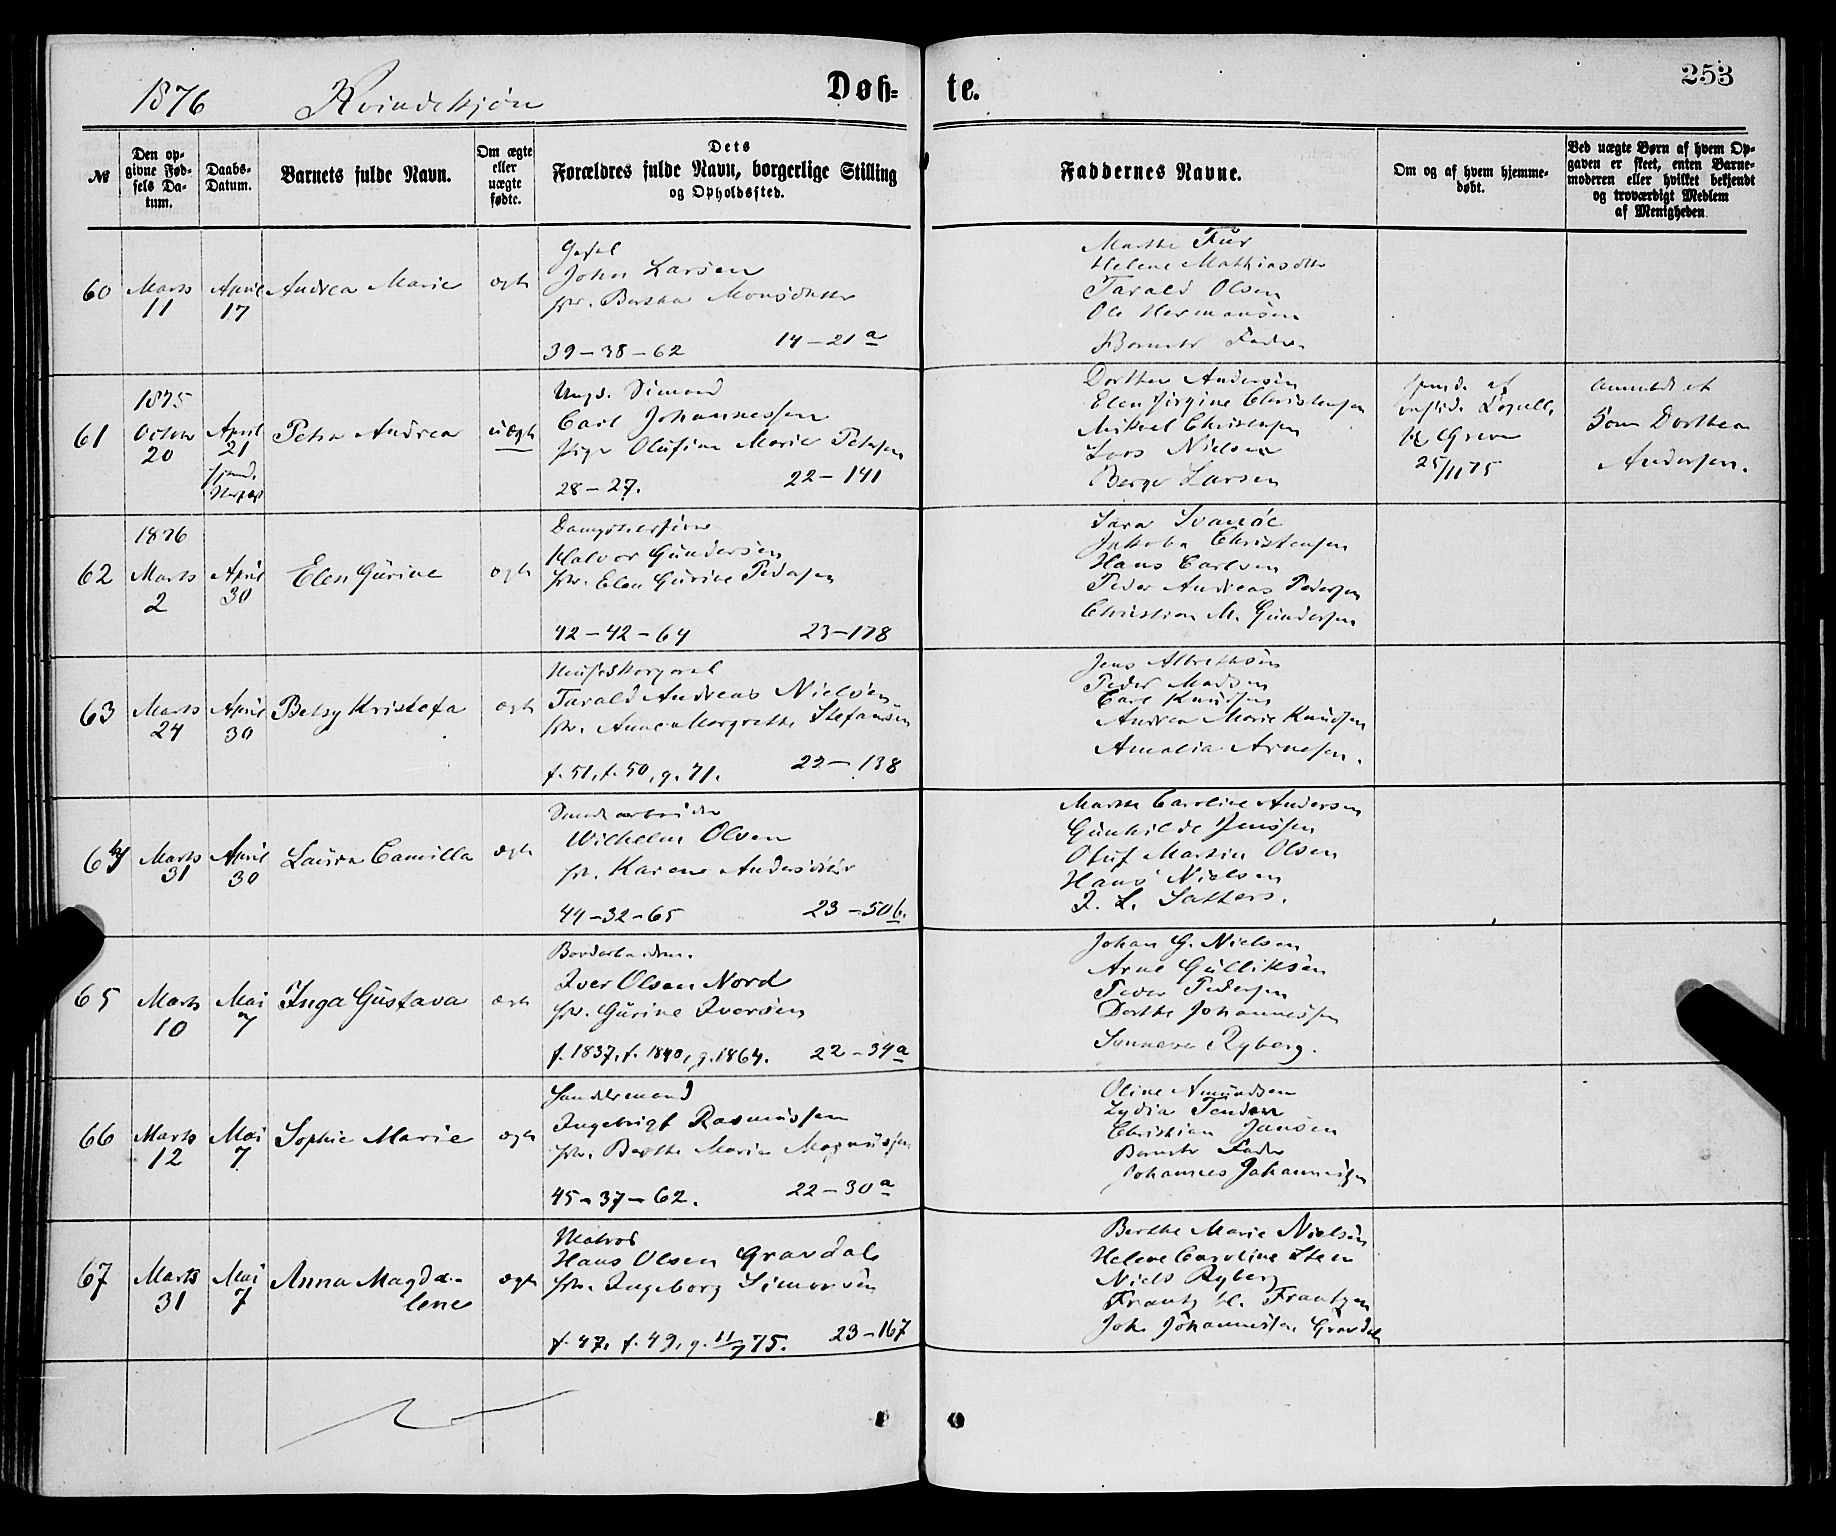 1876 Kvindekjøn Døb= te. 253
№
Den op-
givne Fød-
sels Da-
tum.
Daabs-
Datum.
Barnets fulde Navn.
Om ægte
eller
uægte
fødte.
Dets
Forældres fulde Navn, borgerlige Stilling
og Opholdssted.
Faddernes Navne.
Om og af hvem hjemme-
døbt.
Ved uægte Børn af hvem Op-
gaven er skeet, enten Barne-
moderen eller hvilket bekjendt
og troværdigt Medlem
af Menigheden
60
Marts
11
April
17
Andrea Marie
ægte
John Larsen
Monsdatter
39-38-62 14-21a
Marthe
Helene Mathiasdtr
Tarald Olsen
Ole Hermansen
Barnets Fader
61
1875
October
20
April
21
Petra Andrea
uægte
Ungk.
Carl Johannessen
Pige Olufine Marie Petersen
28-27. 22-141
Dorthea Andersen
Elen Jirgine Christensen
Mikael Christensen
Lars Nielsen
Berger Larsen
25/11 75
Dorthea
Andersen.
62
1876
Marts
2
April
30
Elen Gurine
ægte
Halvor Gundersen
Elen Gurine Pedersen
42-42-64 23-178
Sara Svanøe
Jakobe Christensen
Hans Carlsen
Peder Andreas Pedersen
Christian M. Gundersen
63
Marts
24
April
30
Betsy Kristofa
ægte
Tarald Andreas Nielsen
Anne Margrethe Stefansen
f. 51, f. 50, g. 71. 22-138
Jens Albrethsen
Peder Madsen
Carl Knudsen
Andrea Marie Knudsen
Amalia Arnesen.
64
Marts
31
April
30
Laura Camilla
ægte
Wilhelm Olsen
Karen Andersdatter
44-32-65 23-50b.
Marthe Caroline Andersen
Gunhilde Jenssen
Oluf Martin Olsen
Hans Nielsen
65
Marts
10
Mai
7
Inga Gustava
ægte
Bordarbeider.
Iver Olsen Nord
Gurine Iversen
f. 1837, f. 1840, g. 1864. 22-34a
Johan G. Nielsen
Arne Gulliksen
Peder Pedersen
Dorthe Johannessen
Ryberg.
66
Marts
12
Mai
7
Sophie Marie
ægte
Handelsmand
Ingebrigt Rasmussen
Berthe Marie Magnussen
45-37-62. 22-30a
Oline Amundsen
Lydia
Christian Jansen
Barnets Fader
Johannes Johannessen
67
Marts
31
Mai
7
Anna Magda-
lene
ægte
Matros
Hans Olsen Gravdal
Ingeborg Simonsen
f. 47, f. 49, g. 11/7 75. 23-167
Berthe Marie Nielsen
Helene Caroline Steen
Niels Ryberg
Frantz H. Frantzen
Joh. Johannesen Gravdal